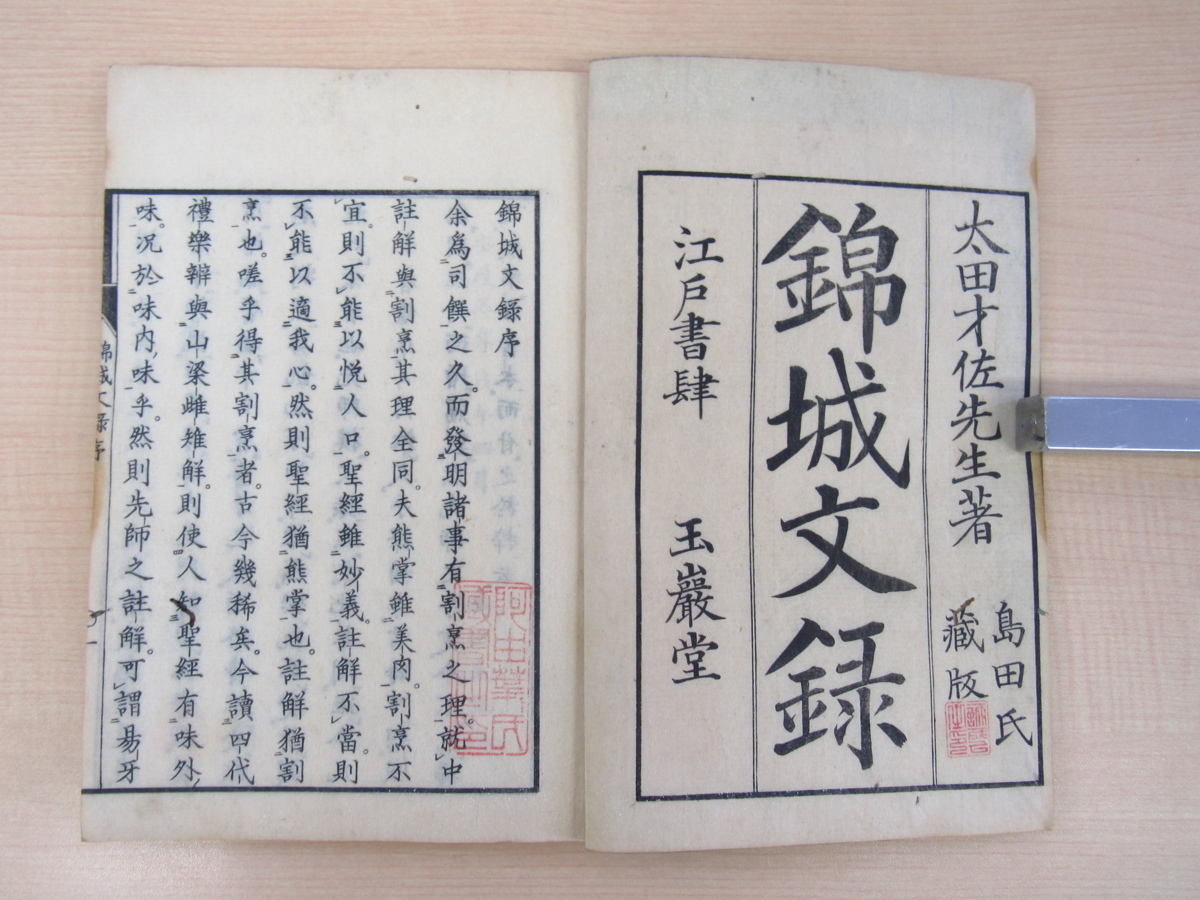 太田才佐先生著
島田氏
藏版
錦城文録
江戸書肆　玉巖堂
錦城文録序
余為司饌之久。而發明諸事有割烹之理。就中
註解與割烹其理全同。夫熊掌雖美肉。割烹不
宜。則不能以悦人口。聖經雖妙義。註解不當。則
不能以適我心。然則聖經猶熊掌也。註解猶割
烹也。嗟乎得其割烹者。古今幾稀矣。今讀四代
禮樂辨與山梁雌雉解。則使人知聖經有味外
味。況於味内味乎。然則先師之註解。可謂易牙
錦城文録序